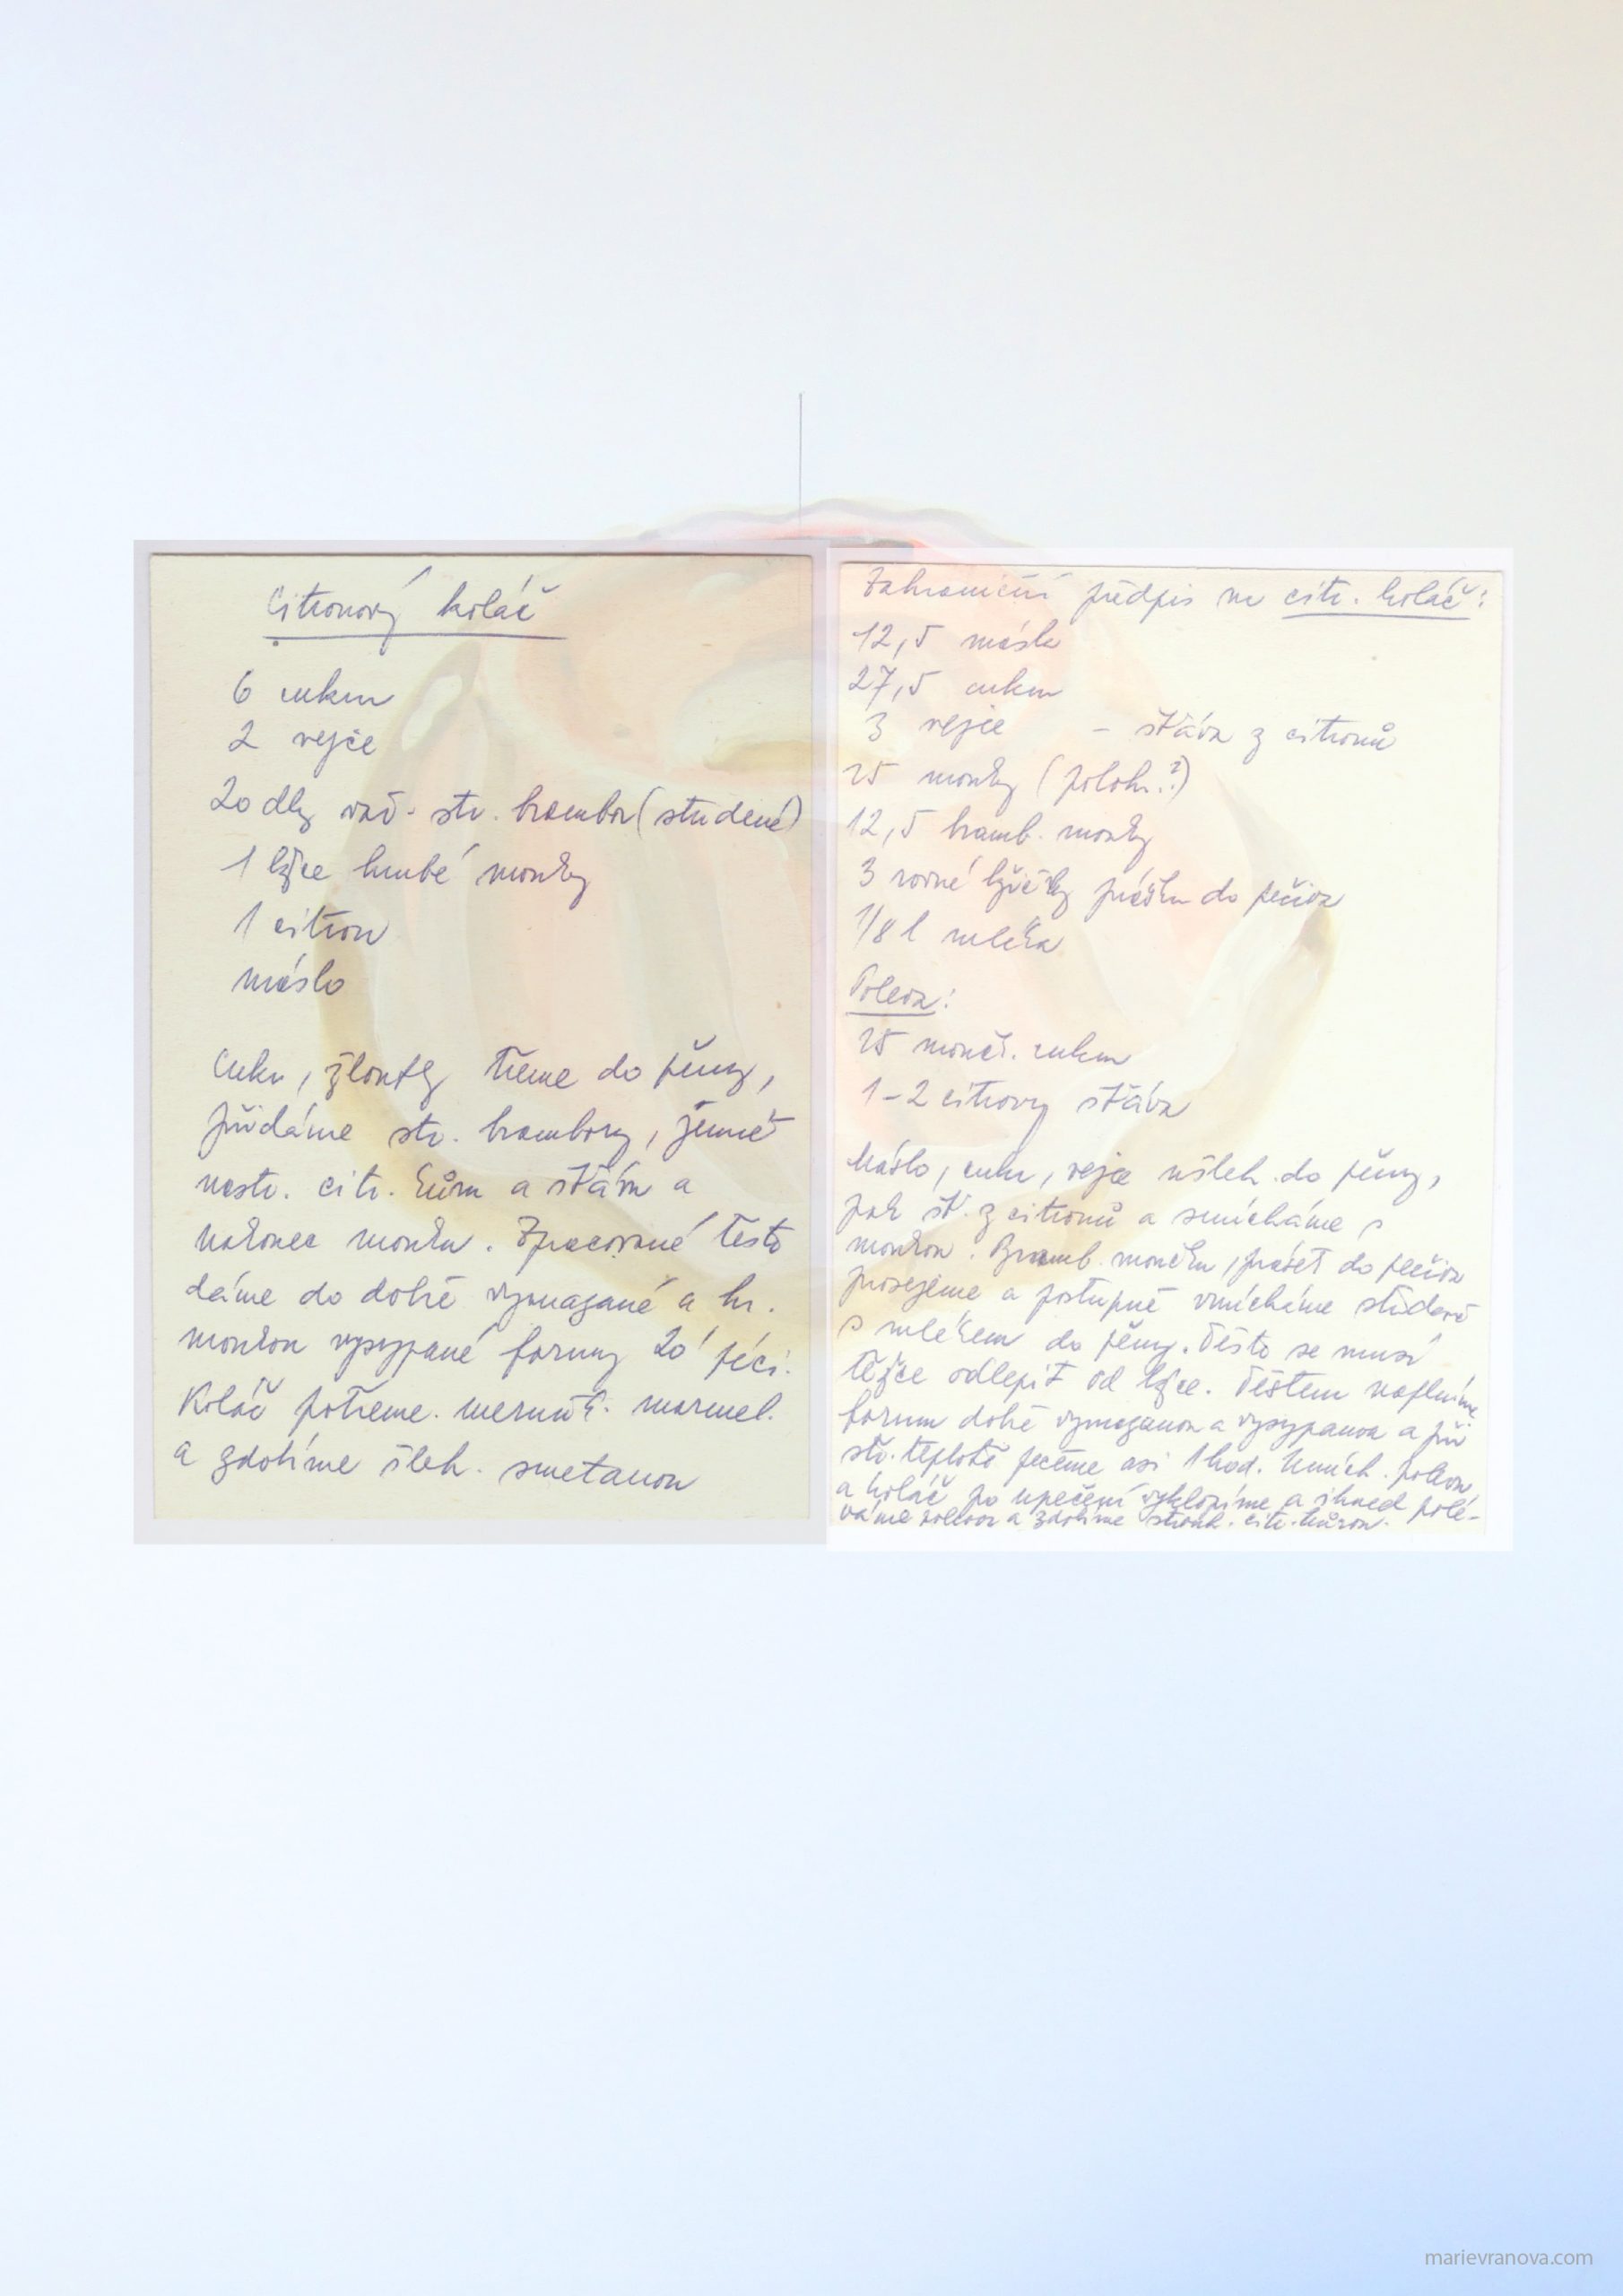 Citronový koláč
6 cukru
2 vejce
20 dkg vař. str. brambor (studené)
1 lžíce hrubé mouky
1 citron
máslo
Cukr, žloutky třeme do pěny,
přidáme str. brambory, jemně
nastr. citr. kůru a šťávu a
nakonec mouku. Zpracované těsto
dáme do dobře vymazané a hr.
moukou vysypané formy 20' péci.
Koláč potřeme. meruňk. marmel.
a zdobíme šleh. smetanou
Zahraniční předpis na citr. koláč:
12,5 másla
27,5 cukru
3 vejce - šťáva z citronů
25 mouky (polohr.?)
12,5 bramb. mouky
3 rovné lžičky prášku do pečiva
1/8 l mléka
Poleva:
25 mouč. cukru
1-2 citrony šťáva
Máslo, cukr, vejce ušleh. do pěny,
pak šť. z citronů a smícháme s
moukou. Bramb. moučku, prášek do pečiva
prosejeme a postupně vmícháme střídavě
s mlékem do pěny. Těsto se musí
těžce odlepit od lžíce. Těstem naplníme
formu dobře vymazanou a vysypanou a při
stř. teplotě pečeme asi 1 hod. Umích. polevu
a koláč po upečení vyklopíme a ihned polé-
váme polevou a zdobíme strouh. citr. kůrou.
marievranova.com